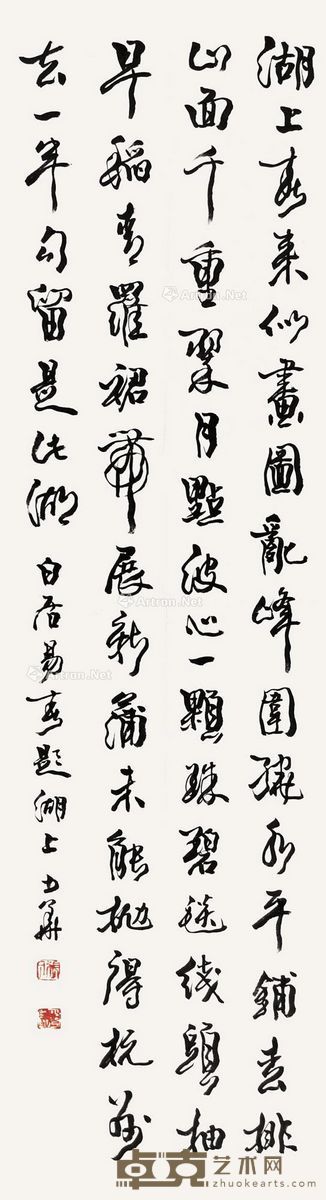 湖上春來似畫圖亂峰圍繞水平鋪枩排
山面千重翠月點波心一顆珠碧毯綫頭抽
早稻青羅裙帶展新蒲未能拋得杭州
去一半勾留是此湖 白居易春題湖上
Artron.Net
Artron.Net
Artron.Net
Artron.Net
卓克艺术网
zhuokearts.com